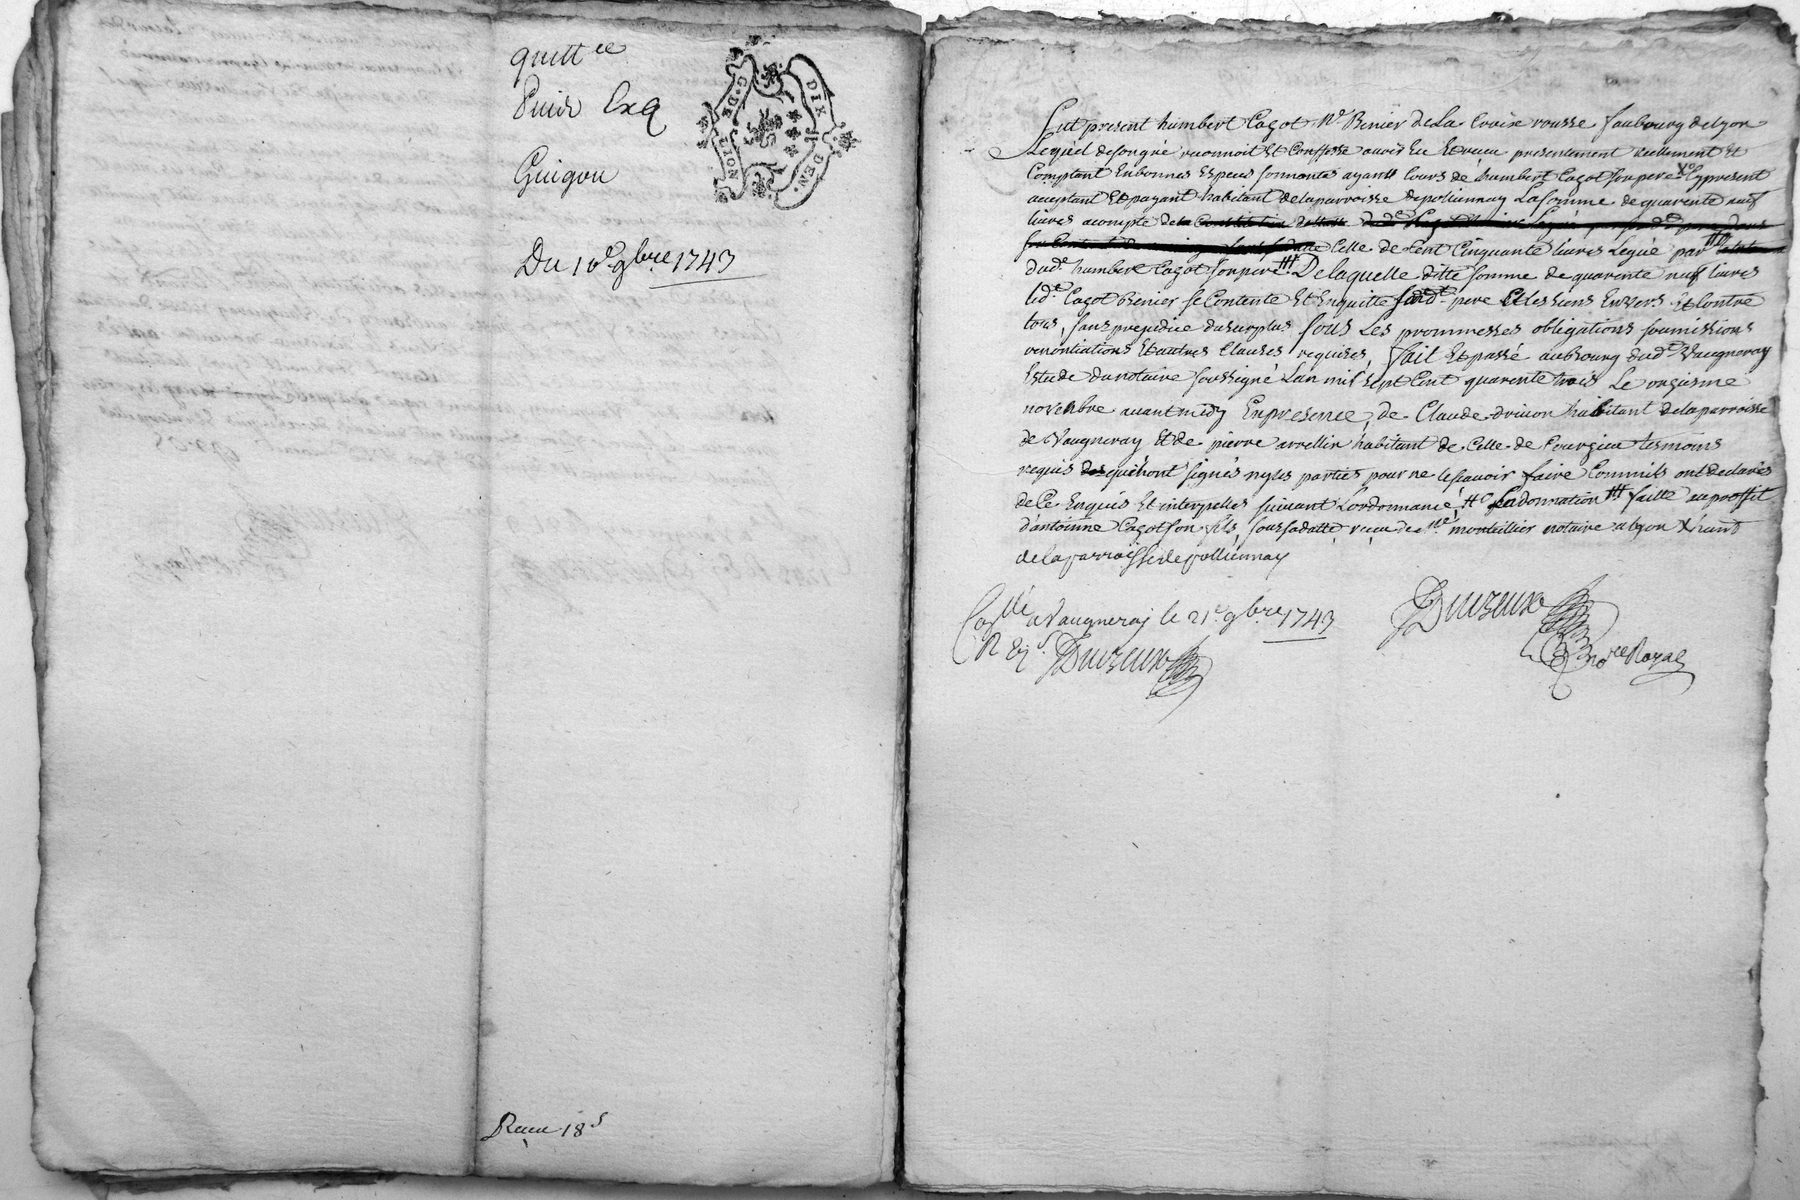 quitt ce
Guigou
Du 10e 9bre 1743
G. DE LION
DIX DEN.
Receu 18 s
Fut present humbert Cagot Me Benier de La Croix rousse faubourg de Lyon
Lequel de son gré reconnoit Et Confesse avoir Eu Et receu presentement reellement Et
Comptant En bonnes Especes sonnantes ayant Cours de humbert Cagot son pere Xe Cy present
acceptant Et payant habitant de la parroisse de pollionnay La somme de quarente neuf
livres acompte de
Celle de Cent Cinquante livres Legué par
dud.t humbert Cagot son pere De laquelle ditte somme de quarente neuf livres
led.t Cagot Benier se Contente Et Enquitte sond.t pere Et les siens Envers Et Contre
tous, sans prejudice du surplus sous Les prommesses obligations soumissions
renontiations Et autres Clauses requises, fait Et passé au bourg dud.t Vaugneray
Estude du notaire soussigné L'an mil sept Cent quarente trois Le onzieme
novembre avant midy En presence de Claude drivon habitant de la parroisse
de Vaugneray Et de pierre arvellin habitant de Celle de Courzieu tesmoins
requis qui n'ont signés ny les parties pour ne le scavoir faire Comm'ils ont declarés
de Ce Enquis Et interpellés suivant L'ordonnance, donnation faitte au proffit
d'antoinne Cagot son fils, sous sa datte, receu de Me montellier notaire a Lyon X hant
de la parroisse de pollionnay
Collé a Vaugneray le 21e 9bre 1743
R
nore Royal